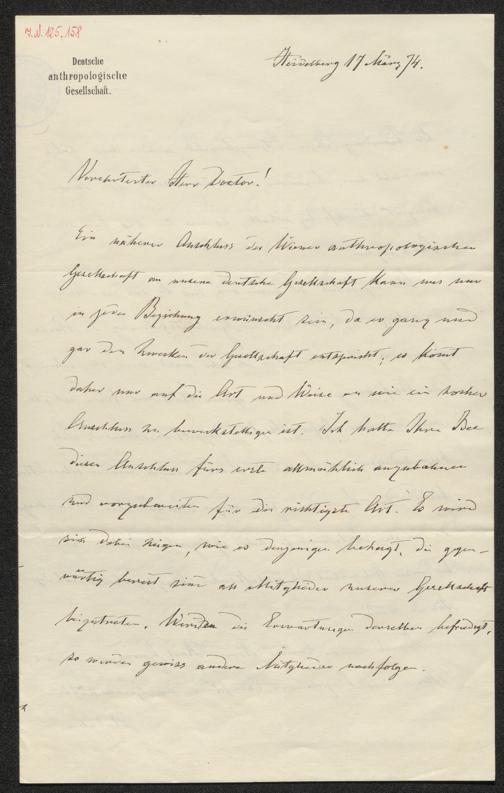 I.N. 125.158
Deutsche
anthropologische
Gesellschaft.
Heidelberg 17 März 74.
Verehrtester Herr Doctor!
Ein näherer Anschluss der Wiener anthropologischen
Gesellschaft an unsere deutsche Gesellschaft kann uns nur
in jeder Beziehung erwünscht sein, da er ganz und
gar den Zwecken der Gesellschaft entspricht; es kömt
daher nur auf die Art und Weise an wie ein solcher
Anschluss zu bewerkstelligen ist. Ich halte Ihre Idee
diesen Anschluss fürs erste allmählich anzubahnen
und vorzubereiten für die richtigste Art. Es wird
sich dabei zeigen, wie es denjenigen behagt, die gegen-
wärtig bereit sind als Mitglieder unserer Gesellschaft
beizutreten. Werden die Erwartungen derselben befriedigt,
so werden gewiss andere Mitglieder nachfolgen.